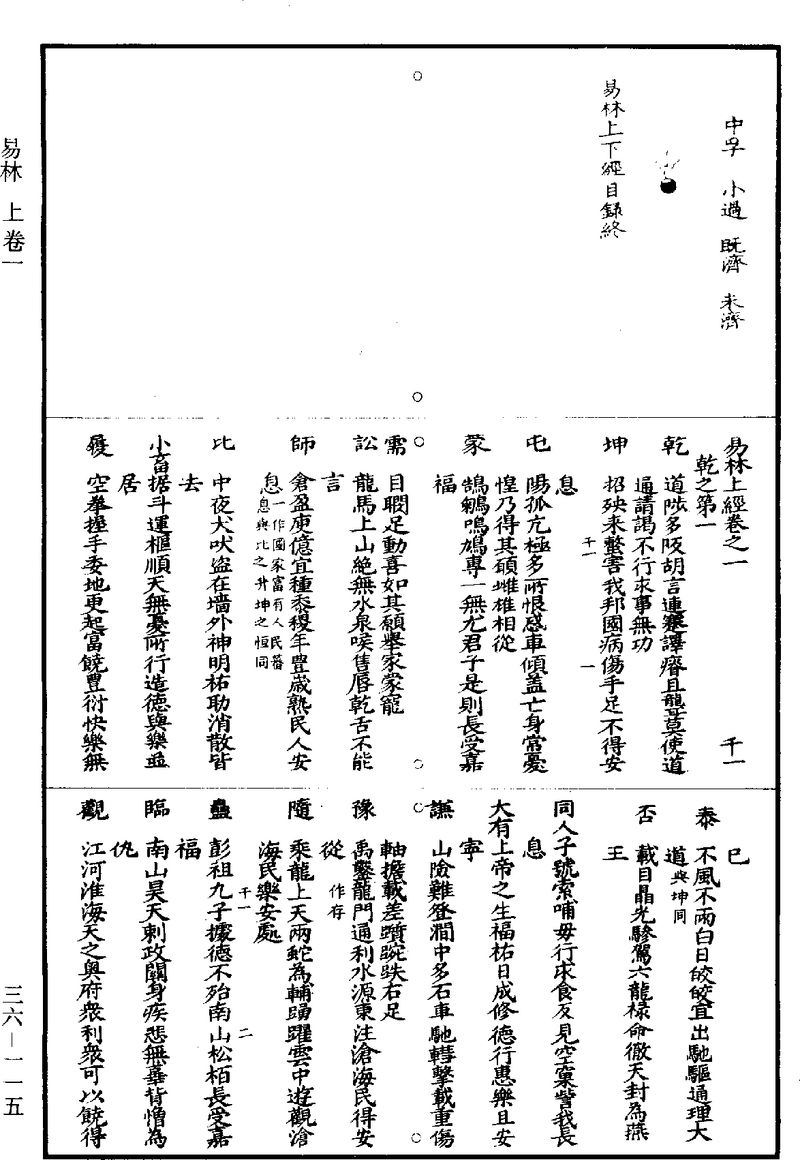 易林 上卷一
三六－一一五
中孚 小過 既濟 未濟
易林上下經目録終
易林上經卷之一 千一
乾之第一
乾 道陟多阪胡言連蹇譯瘖且聾莫使道
通請謁不行求事無功
坤 招殃来螫害我邦國病傷手足不得安
息 千一 一
屯 陽孤亢極多所恨惑車傾盖亡身常憂
惶乃得其碩雌雄相從
蒙 鵠鵴鳲鳩專一無尤君子是則長受嘉
福
需 目瞤足動喜如其願舉家蒙寵
訟 龍馬上山絶無水泉喉焦唇乾舌不能
言
師 倉盈庾億宜種黍稷年豊歲熟民人安
息一作國家富有人民蕃
息與比之升坤之恒同
比 中夜犬吠盗在墻外神明祐助消散皆
去
小畜据斗運樞順天無憂所行造德與樂並
居
履 空拳握手委地更起富饒豊衍快樂無
已
泰 不風不雨白日皎皎宜出馳驅通理大
道與坤同
否 載日晶光驂駕六龍禄命徹天封為燕
王
同人子號索哺母行求食反見空窠訾我長
息
大有上帝之生福祐日成修德行惠樂且安
寧
謙 山險難登澗中多石車馳轊擊載重傷
軸擔載差躓踠跌右足
豫 禹鑿龍門通利水源東注滄海民得安
從作存
隨 乘龍上天兩蛇為輔踴躍雲中遊觀滄
海民樂安處
千一 二
蠱 彭祖九子據德不殆南山松栢長受嘉
福
臨 南山昊天刺政闗身疾悲無辜背憎為
仇
觀 江河淮海天之奥府衆利衆可以饒得